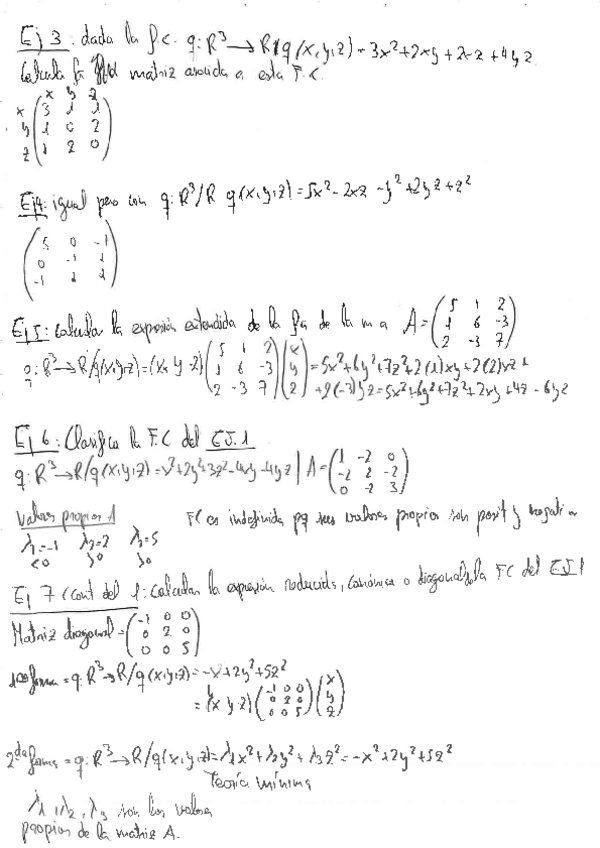 Ej 3: dada la f.c. q: R³ → R / q(x,y,z) = 3x² + 2xy + 2xz + 4yz.
Calcula la matriz asociada a esta F.C.
x y z
x ( 3 1 1 )
y ( 1 0 2 )
z ( 1 2 0 )
Ej 4: igual pero con q: R³/R q(x,y,z) = 5x² - 2xz - y² + 2yz + z²
( 5 0 -1 )
( 0 -1 1 )
( -1 1 1 )
Ej 5: Calcular la expresión extendida de la de la m a A = ( 5 1 2 ; 1 6 -3 ; 2 -3 7 )
q: R³ → R/q(x,y,z) = (x y z) ( 5 1 2 ; 1 6 -3 ; 2 -3 7 ) ( x ; y ; z ) = 5x² + 6y² + 7z² + 2(1)xy + 2(2)xz +
+ 2(-3)yz = 5x² + 6y² + 7z² + 2xy + 4z - 6yz
Ej 6: Clasifica la F.C del EJ. 1
q: R³ → R/q(x,y,z) = x² + 2y² + 3z² - 4xy - 4yz | A = ( 1 -2 0 ; -2 2 -2 ; 0 -2 3 )
Valores propios A FC es indefinida pq sus valores propios son posit y negativ
λ₁ = -1 λ₂ = 2 λ₃ = 5
<0 >0 >0
Ej 7 (cont del 1: Calcular la expresión reducida, canónica o diagonal de la FC del EJ 1
Matriz diagonal = ( -1 0 0 ; 0 2 0 ; 0 0 5 )
1era forma = q: R³ → R/q(x,y,z) = -x² + 2y² + 5z²
= (x y z) ( -1 0 0 ; 0 2 0 ; 0 0 5 ) ( x ; y ; z )
2da forma = q: R³ → R/q(x,y,z) = λ₁x² + λ₂y² + λ₃z² = -x² + 2y² + 5z²
Teoría mínima
λ₁, λ₂, λ₃ son los valores
propios de la matriz A.